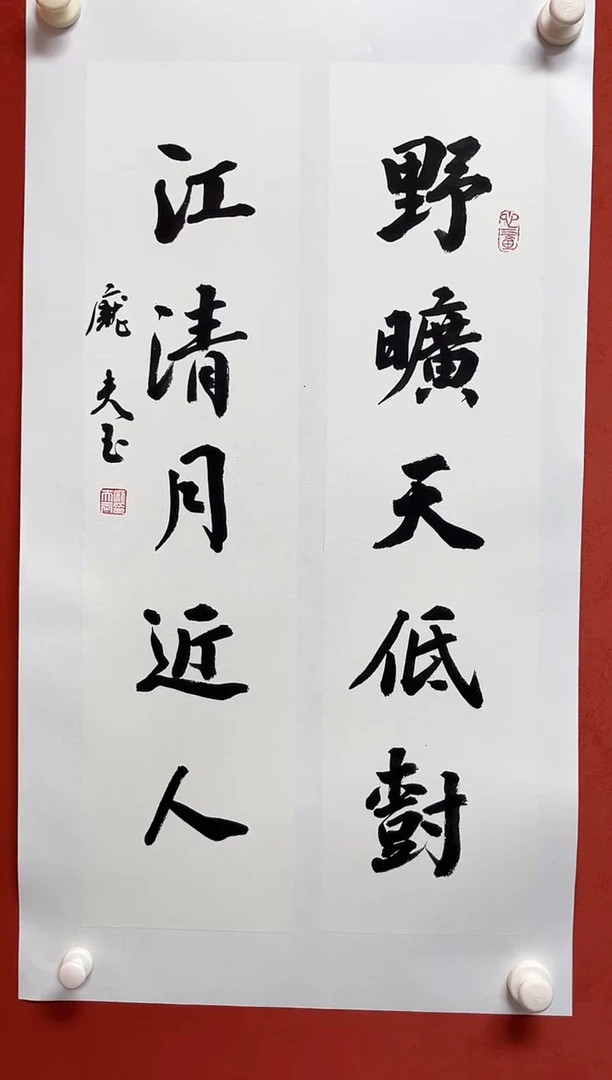 野曠天低樹
江清月近人
龐夫玉